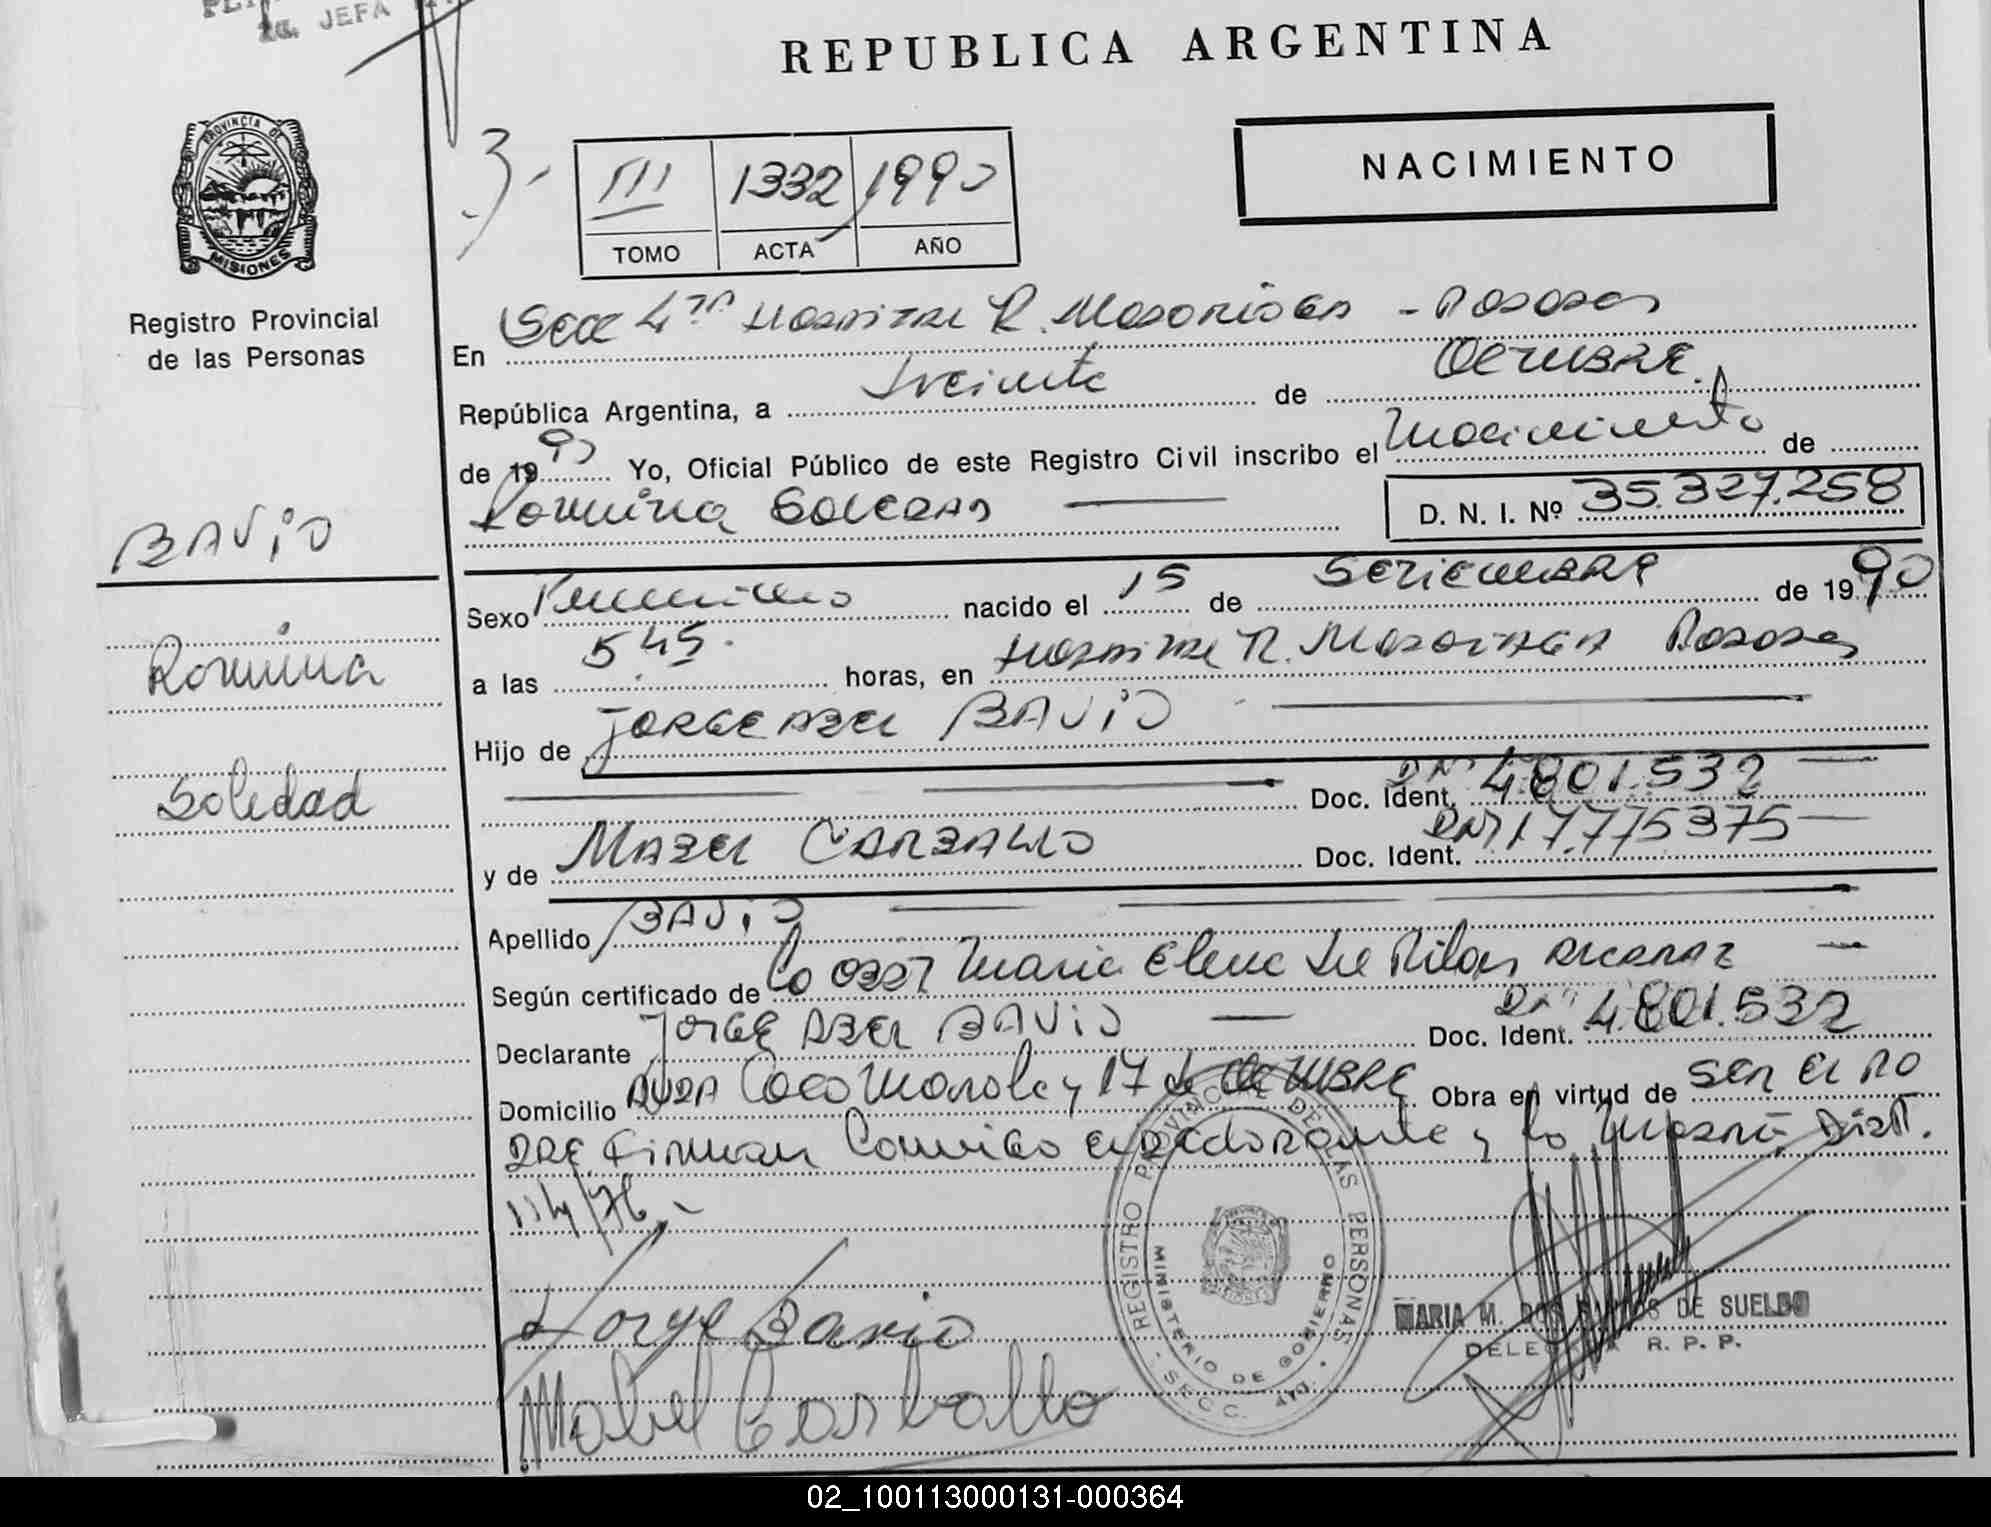 2a. JEFA
REPUBLICA ARGENTINA
PROVINCIA DE
MISIONES
Registro Provincial
de las Personas
3-
III 1332 1990
TOMO ACTA AÑO
NACIMIENTO
En Secc 4ta Hospital R. Madariaga - Posadas
República Argentina, a treinta de OCTUBRE
de 1990 Yo, Oficial Público de este Registro Civil inscribo el Nacimiento de
Romina SOLEDAD
D. N. I. Nº 35.327.258
BAVIO
Romina
Soledad
Sexo Femenino nacido el 15 de SETIEMBRE de 1990
a las 5 45 horas, en HOSPITAL R. MADARIAGA POSADAS
Hijo de JORGE ABEL BAVIO
Doc. Ident. DNI 4.801.532
y de MABEL CARBALLO Doc. Ident. DNI 17.775375
Apellido BAVIO
Según certificado de la OBST Maria Elena del Pilar
Declarante JORGE ABEL BAVIO Doc. Ident. DNI 4.801.532
Domicilio AVDA Coco Marola y 17 de OCTUBRE Obra en virtud de SER EL PA
DRE Firman Conmigo el declarante y la
114/76.-
Jorge Bavio
Mabel Carballo
REGISTRO PROVINCIAL DE LAS PERSONAS
MINISTERIO DE GOBIERNO
- SECC. 4TA. -
MARIA M. DOS SANTOS DE SUELDO
DELEGADA R. P. P.
02_100113000131-000364